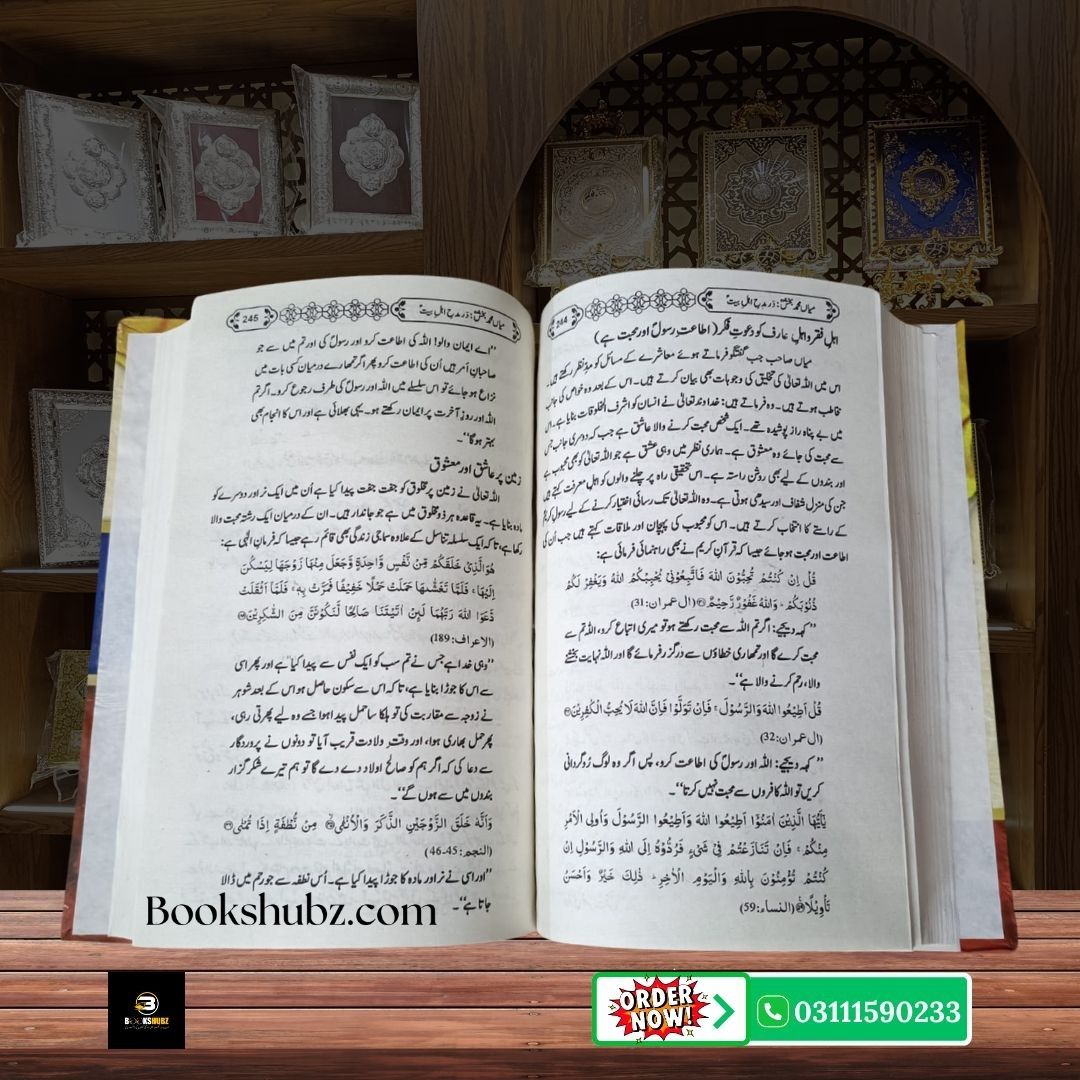 میاں محمد بخشؒ: در مدحِ اہلِ بیتؑ
244
اہلِ فقر و اہلِ عارف کو دعوتِ فکر (اطاعتِ رسولؐ اور محبت ہے)
میاں صاحب جب گفتگو فرماتے ہوئے معاشرے کے مسائل کو مدِّنظر رکھتے ہیں۔
اس میں اللہ تعالیٰ کی تخلیق کی وجوہات بھی بیان کرتے ہیں۔ اس کے بعد وہ خواص کی جانب
مخاطب ہوتے ہیں۔ وہ فرماتے ہیں: خداوند تعالیٰ نے انسان کو اشرف المخلوقات بنایا ہے۔ اس
میں بے پناہ راز پوشیدہ تھے۔ ایک شخص محبت کرنے والا عاشق ہے جب کہ دوسری جانب جس
سے محبت کی جائے وہ معشوق ہے۔ ہماری نظر میں وہی عشق ہے جو اللہ تعالیٰ کو بھی محبوب ہے
اور بندوں کے لیے بھی روشن راستہ ہے۔ اس تحقیقی راہ پر چلنے والوں کو اہلِ معرفت کہتے ہیں
جن کی منزل شفاف اور سیدھی ہوتی ہے۔ وہ اللہ تعالیٰ تک رسائی اختیار کرنے کے لیے رسولِ کریمؐ
کے راستے کا انتخاب کرتے ہیں۔ اس کو محبوب کی پہچان اور ملاقات کہتے ہیں جب اُن کی
اطاعت اور محبت ہو جائے جیسا کہ قرآنِ کریم نے بھی راہنمائی فرمائی ہے:
قُلْ اِنْ كُنْتُمْ تُحِبُّوْنَ اللّٰهَ فَاتَّبِعُوْنِیْ یُحْبِبْكُمُ اللّٰهُ وَیَغْفِرْ لَكُمْ
ذُنُوْبَكُمْ ۚ وَاللّٰهُ غَفُوْرٌ رَّحِیْمٌ (آل عمران: 31)
”کہہ دیجیے: اگر تم اللہ سے محبت رکھتے ہو تو میری اتباع کرو، اللہ تم سے
محبت کرے گا اور تمھاری خطاؤں سے درگزر فرمائے گا اور اللہ نہایت بخشنے
والا، رحم کرنے والا ہے“۔
قُلْ اَطِیْعُوا اللّٰهَ وَالرَّسُوْلَ ۚ فَاِنْ تَوَلَّوْا فَاِنَّ اللّٰهَ لَا یُحِبُّ الْكٰفِرِیْنَ
(آل عمران: 32)
”کہہ دیجیے: اللہ اور رسولؐ کی اطاعت کرو، پس اگر وہ لوگ رُوگردانی
کریں تو اللہ کافروں سے محبت نہیں کرتا“۔
یٰۤاَیُّهَا الَّذِیْنَ اٰمَنُوْۤا اَطِیْعُوا اللّٰهَ وَاَطِیْعُوا الرَّسُوْلَ وَاُولِی الْاَمْرِ
مِنْكُمْ ۚ فَاِنْ تَنَازَعْتُمْ فِیْ شَیْءٍ فَرُدُّوْهُ اِلَی اللّٰهِ وَالرَّسُوْلِ اِنْ
كُنْتُمْ تُؤْمِنُوْنَ بِاللّٰهِ وَالْیَوْمِ الْاٰخِرِ ؕ ذٰلِكَ خَیْرٌ وَّاَحْسَنُ
تَاْوِیْلًا (النساء: 59)
میاں محمد بخشؒ: در مدحِ اہلِ بیتؑ
245
”اے ایمان والو! اللہ کی اطاعت کرو اور رسولؐ کی اور تم میں سے جو
صاحبانِ اَمر ہیں اُن کی اطاعت کرو پھر اگر تمھارے درمیان کسی بات میں
نزاع ہو جائے تو اس سلسلے میں اللہ اور رسولؐ کی طرف رجوع کرو۔ اگر تم
اللہ اور روزِ آخرت پر ایمان رکھتے ہو۔ یہی بھلائی ہے اور اس کا انجام بھی
بہتر ہوگا“۔
زمین پر عاشق اور معشوق
اللہ تعالیٰ نے زمین پر مخلوق کو جفت جفت پیدا کیا ہے اُن میں ایک نر اور دوسرے کو
مادہ بنایا ہے۔ یہ قاعدہ ہر ذو مخلوق میں ہے جو جاندار ہیں۔ ان کے درمیان ایک رشتہ محبت والا
رکھا ہے، تاکہ ایک سلسلہ تناسل کے علاوہ سماجی زندگی بھی قائم رہے جیسا کہ فرمانِ الٰہی ہے:
هُوَ الَّذِیْ خَلَقَكُمْ مِّنْ نَّفْسٍ وَّاحِدَةٍ وَّجَعَلَ مِنْهَا زَوْجَهَا لِیَسْكُنَ
اِلَیْهَا ۚ فَلَمَّا تَغَشّٰىهَا حَمَلَتْ حَمْلًا خَفِیْفًا فَمَرَّتْ بِهٖ ۚ فَلَمَّاۤ اَثْقَلَتْ
دَّعَوَا اللّٰهَ رَبَّهُمَا لَئِنْ اٰتَیْتَنَا صَالِحًا لَّنَكُوْنَنَّ مِنَ الشّٰكِرِیْنَ
(الاعراف: 189)
”وہی خدا ہے جس نے تم سب کو ایک نفس سے پیدا کیا ہے اور پھر اسی
سے اس کا جوڑا بنایا ہے، تاکہ اس سے سکون حاصل ہو اس کے بعد شوہر
نے زوجہ سے مقاربت کی تو ہلکا سا حمل پیدا ہوا جسے وہ لیے پھرتی رہی،
پھر حمل بھاری ہوا، اور وقتِ ولادت قریب آیا تو دونوں نے پروردگار
سے دعا کی کہ اگر ہم کو صالح اولاد دے دے گا تو ہم تیرے شکر گزار
بندوں میں سے ہوں گے“۔
وَاَنَّهٗ خَلَقَ الزَّوْجَیْنِ الذَّكَرَ وَالْاُنْثٰی مِنْ نُّطْفَةٍ اِذَا تُمْنٰی
(النجم: 45-46)
”اور اسی نے نر اور مادہ کا جوڑا پیدا کیا ہے۔ اُس نطفہ سے جو رحم میں ڈالا
جاتا ہے“۔
Bookshubz.com
BOOKSHUBZ
ORDER NOW!
03111590233